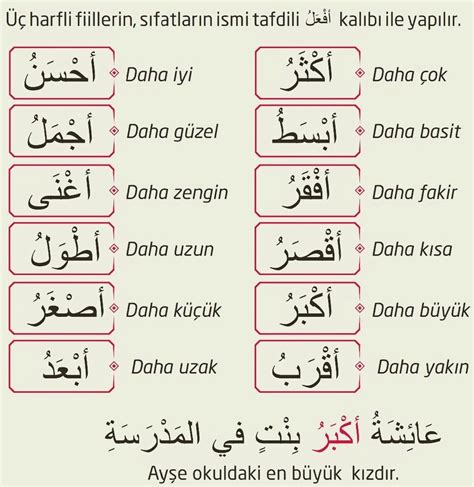 Üç harfli fiillerin, sıfatların ismi tafdili أَفْعَلُ kalıbı ile yapılır.
أَحْسَنُ Daha iyi أَكْثَرُ Daha çok
أَجْمَلُ Daha güzel أَبْسَطُ Daha basit
أَغْنَى Daha zengin أَفْقَرُ Daha fakir
أَطْوَلُ Daha uzun أَقْصَرُ Daha kısa
أَصْغَرُ Daha küçük أَكْبَرُ Daha büyük
أَبْعَدُ Daha uzak أَقْرَبُ Daha yakın
عَائِشَةُ أَكْبَرُ بِنْتٍ في المَدْرَسَةِ
Ayşe okuldaki en büyük kızdır.